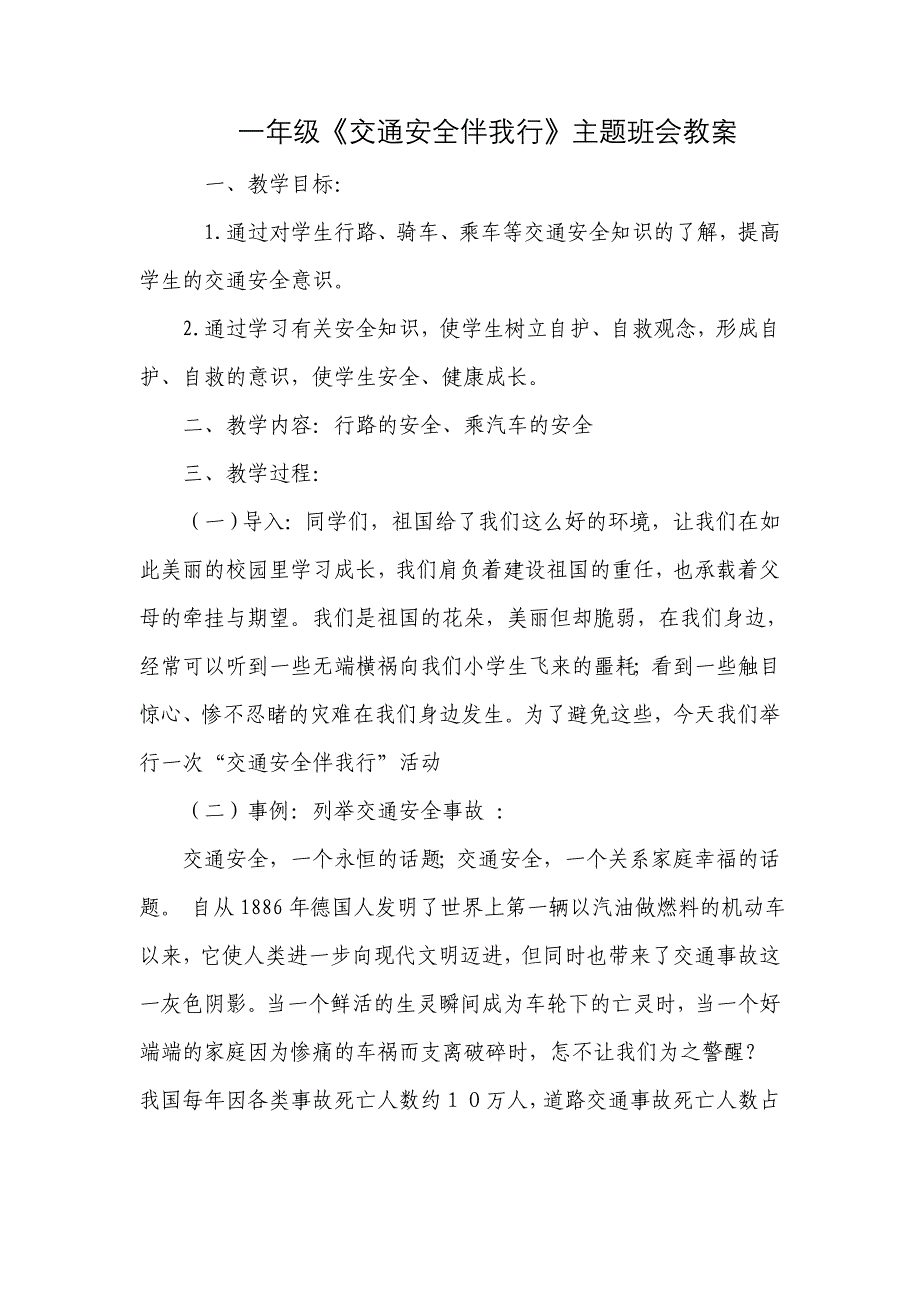 一年级《交通安全伴我行》主题班会教案
一、教学目标：
1.通过对学生行路、骑车、乘车等交通安全知识的了解，提高
学生的交通安全意识。
2.通过学习有关安全知识，使学生树立自护、自救观念，形成自
护、自救的意识，使学生安全、健康成长。
二、教学内容：行路的安全、乘汽车的安全
三、教学过程：
（一）导入：同学们，祖国给了我们这么好的环境，让我们在如
此美丽的校园里学习成长，我们肩负着建设祖国的重任，也承载着父
母的牵挂与期望。我们是祖国的花朵，美丽但却脆弱，在我们身边，
经常可以听到一些无端横祸向我们小学生飞来的噩耗；看到一些触目
惊心、惨不忍睹的灾难在我们身边发生。为了避免这些，今天我们举
行一次“交通安全伴我行”活动
（二）事例：列举交通安全事故 ：
交通安全，一个永恒的话题；交通安全，一个关系家庭幸福的话
题。 自从1886年德国人发明了世界上第一辆以汽油做燃料的机动车
以来，它使人类进一步向现代文明迈进，但同时也带来了交通事故这
一灰色阴影。当一个鲜活的生灵瞬间成为车轮下的亡灵时，当一个好
端端的家庭因为惨痛的车祸而支离破碎时，怎不让我们为之警醒？
我国每年因各类事故死亡人数约１０万人，道路交通事故死亡人数占